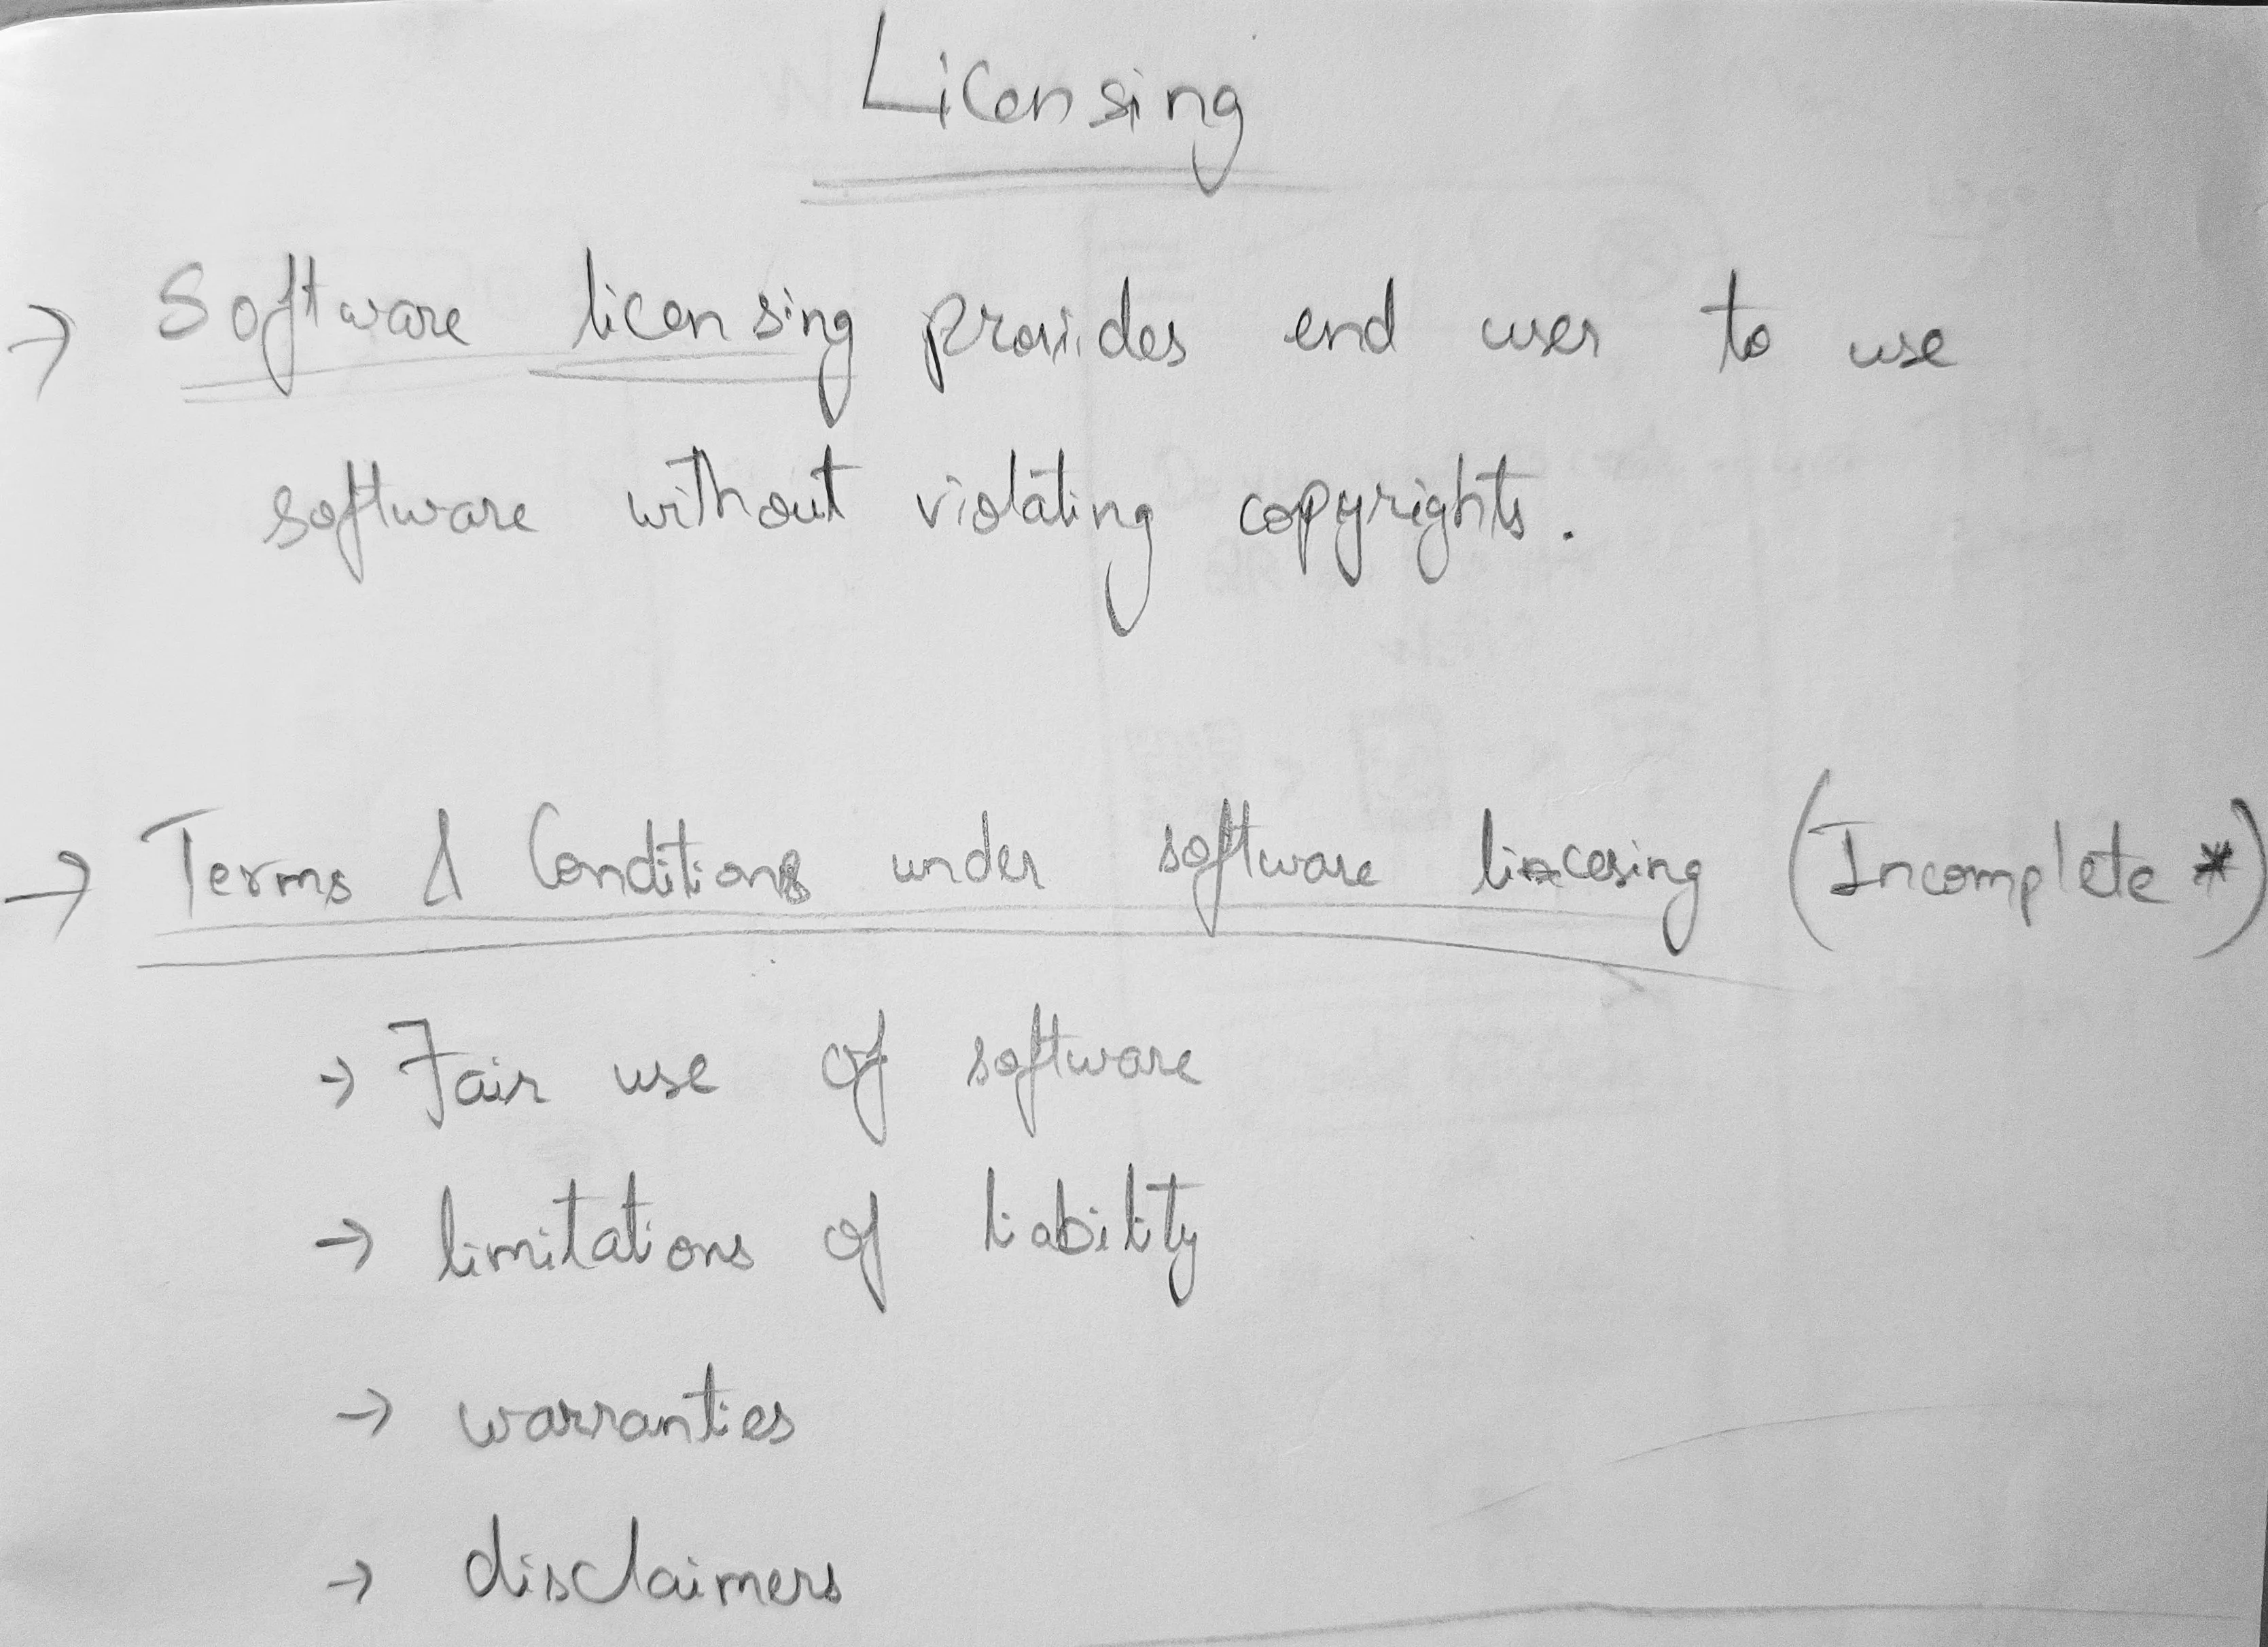 Licensing
→ Software licensing provides end user to use
software without violating copyrights.
→ Terms & Conditions under software lincesing (Incomplete *)
→ Fair use of software
→ limitations of liability
→ warranties
→ disclaimers